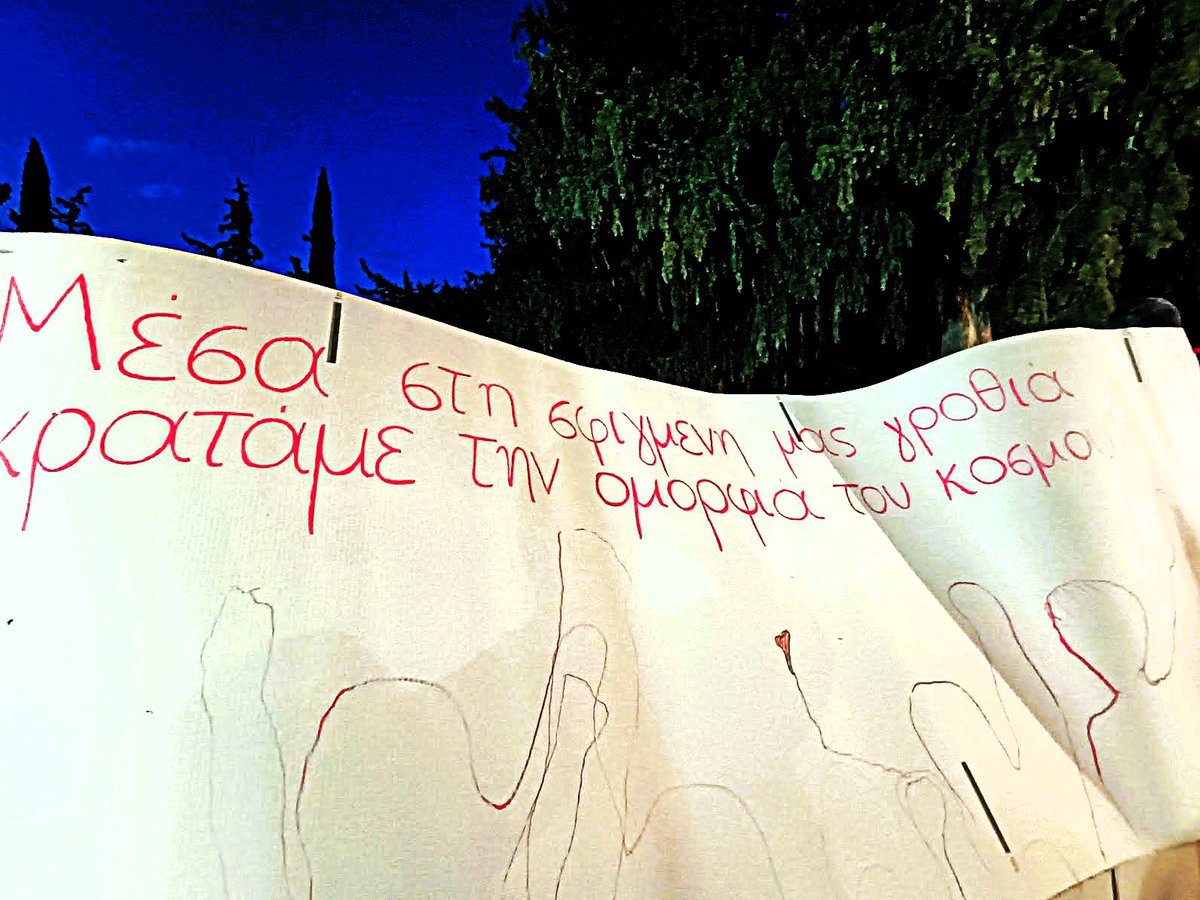 Μέσα στη σφιγμενη μας γροθιά
κρατάμε την ομορφιά του κοσμο